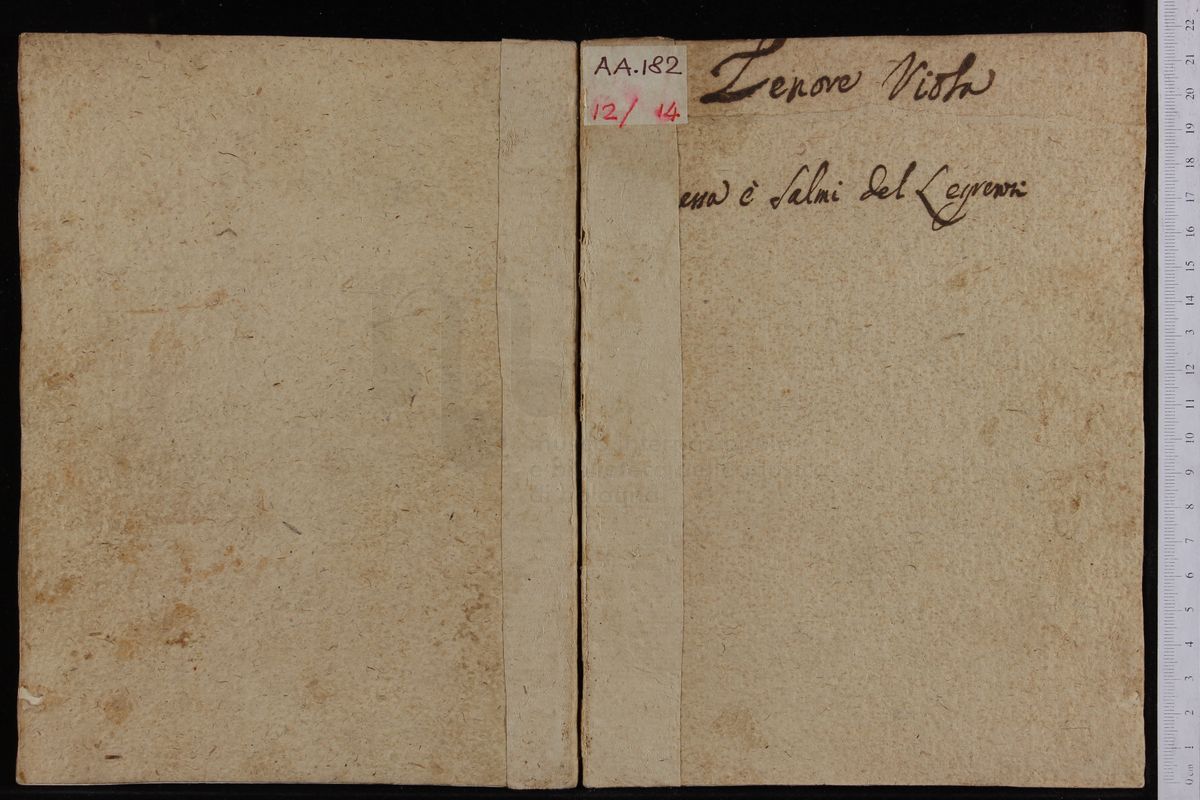 AA.182
12/ 14
Tenore Viola
essa è Salmi del Legrenzi